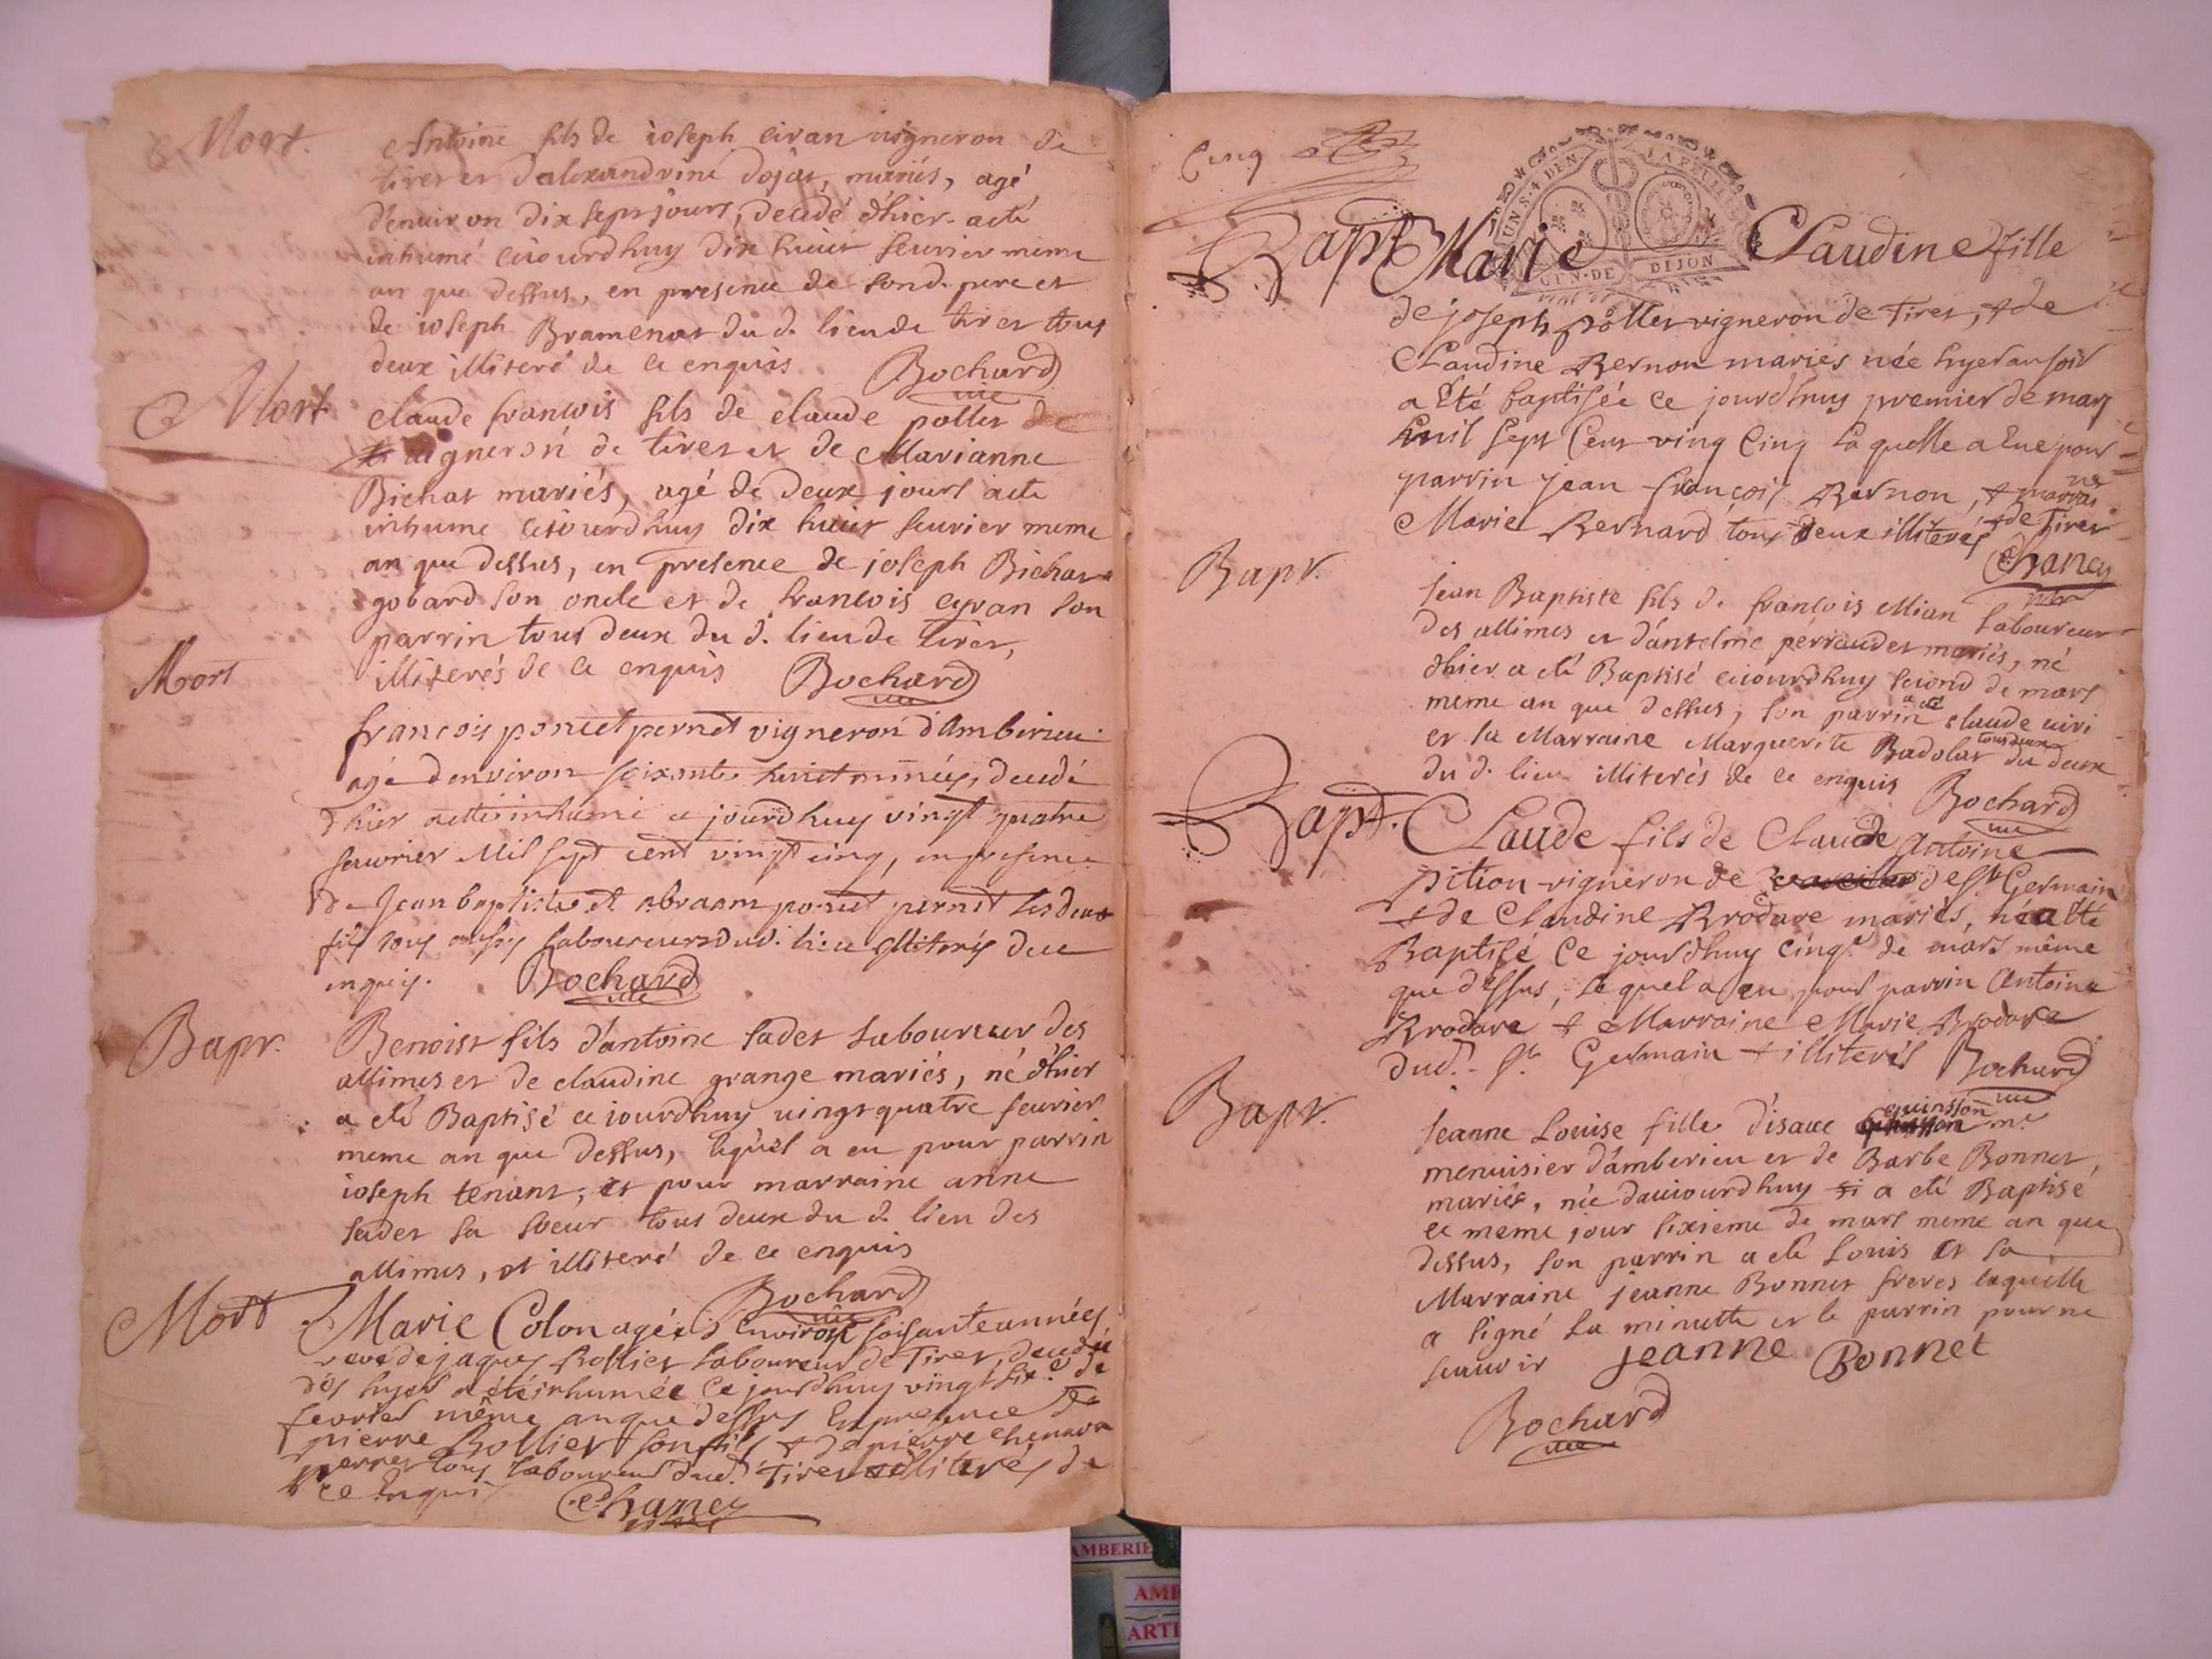 Mort.
Antoine fils de ioseph eivan vigneron de
tiret et dalexandrine dojat, mariés, agé
d'enuiron dix sept jours, decedé d'hier a eté
inhumé ceiourdhuy dix huict feurier meme
an que dessus, en presence de sond. pere et
de ioseph Bramenat du d. lieu de tiret tous
deux illiteré de ce enquis Bochard
Mort
claude francois fils de claude pollet
vigneron de tiret et de Marianne
Bichat mariés, agé de deux jours a eté
inhume ceiourdhuy dix huict feurier meme
an que dessus, en presence de joseph Bichat
gobard son oncle et de francois eyvan son
parrin tous deux du d. lieu de tiret,
illiterés de ce enquis Bochard
Mort
francois poncet pernet vigneron d'Amberieu
agé denviron soixante huict années, decedé
dhier a etté inhumé ce jourdhuy vingt quatre
feuvrier Mil sept cent vingt cinq, en presence
de Jean baptiste et abraam poncet pernet les deux
fils tous laboureurs dud. lieu illiterés de ce
enquis. Bochard
Bapt.
Benoist fils d'antoine sadet laboureur des
allimes et de claudine grange mariés, né d'hier
a eté Baptisé ce iourdhuy uingt quatre feurier
meme an que dessus, lequel a eu pour parrin
ioseph tenant; et pour marraine anne
sadet sa soeur tous deux du d. lieu des
allimes, et illiteré de ce enquis
Bochard
Mort
Marie Colon agée d'environ soisante années
veve de jaques Bollier laboureur de Tiret, decedé
dès hyer a été inhumée ce jourdhuy vingt six.e de
fevrier même an que dessus en presence de
pierre Bollier son fils & de pierre chenava
tous laboureurs dud. Tiret illiterés de
ce enquis
Chaney
Cinq
UN S. 4 DEN. LA FEUILLE
GEN. DE DIJON
Bapt Marie Claudine fille
de joseph pollet vigneron de Tiret, & de
Claudine Bernon mariés née hyer au soir
a été baptisée ce jourdhuy premier de mars
mil sept cent ving cinq laquelle a eue pour
parrin jean françois Bernon, & marrai
ne
Marie Bernard tous deux illiterés & de Tiret
Chaney
Bapt.
Jean Baptiste fils de francois Mian laboureur
des allimes et d'antelme perraudet mariés, né
dhier a eté Baptisé ceiourdhuy second de mars
meme an que dessus, son parrin a eté claude
et sa Marraine Marguerite Badolat tous deux
du d. lieu illiterés de ce enquis Bochard
Bapt.
Claude fils de Claude Antoine
pition vigneron de de St Germain
& de Claudine Brodare mariés, né a été
Baptisé ce jourdhuy cinq.e de mars même
que dessus, lequel a eu pour parrin Antoine
Brodare & Marraine Marie Brodare
dud. St Germain & illiterés Bochard
Bapt.
Jeanne Louise fille d'isaac quinsson m.e
menuisier d'amberieu et de Barbe Bonnet,
mariés, née daujourdhuy a eté Baptisé
ce meme jour sixieme de mars meme an que
dessus, son parrin a eté Louis et sa
Marraine jeanne Bonnet freres laquelle
a signé la minutte et le parrin pour ne
scauoir Jeanne Bonnet
Bochard
AMBERIE
AMB
ARTI